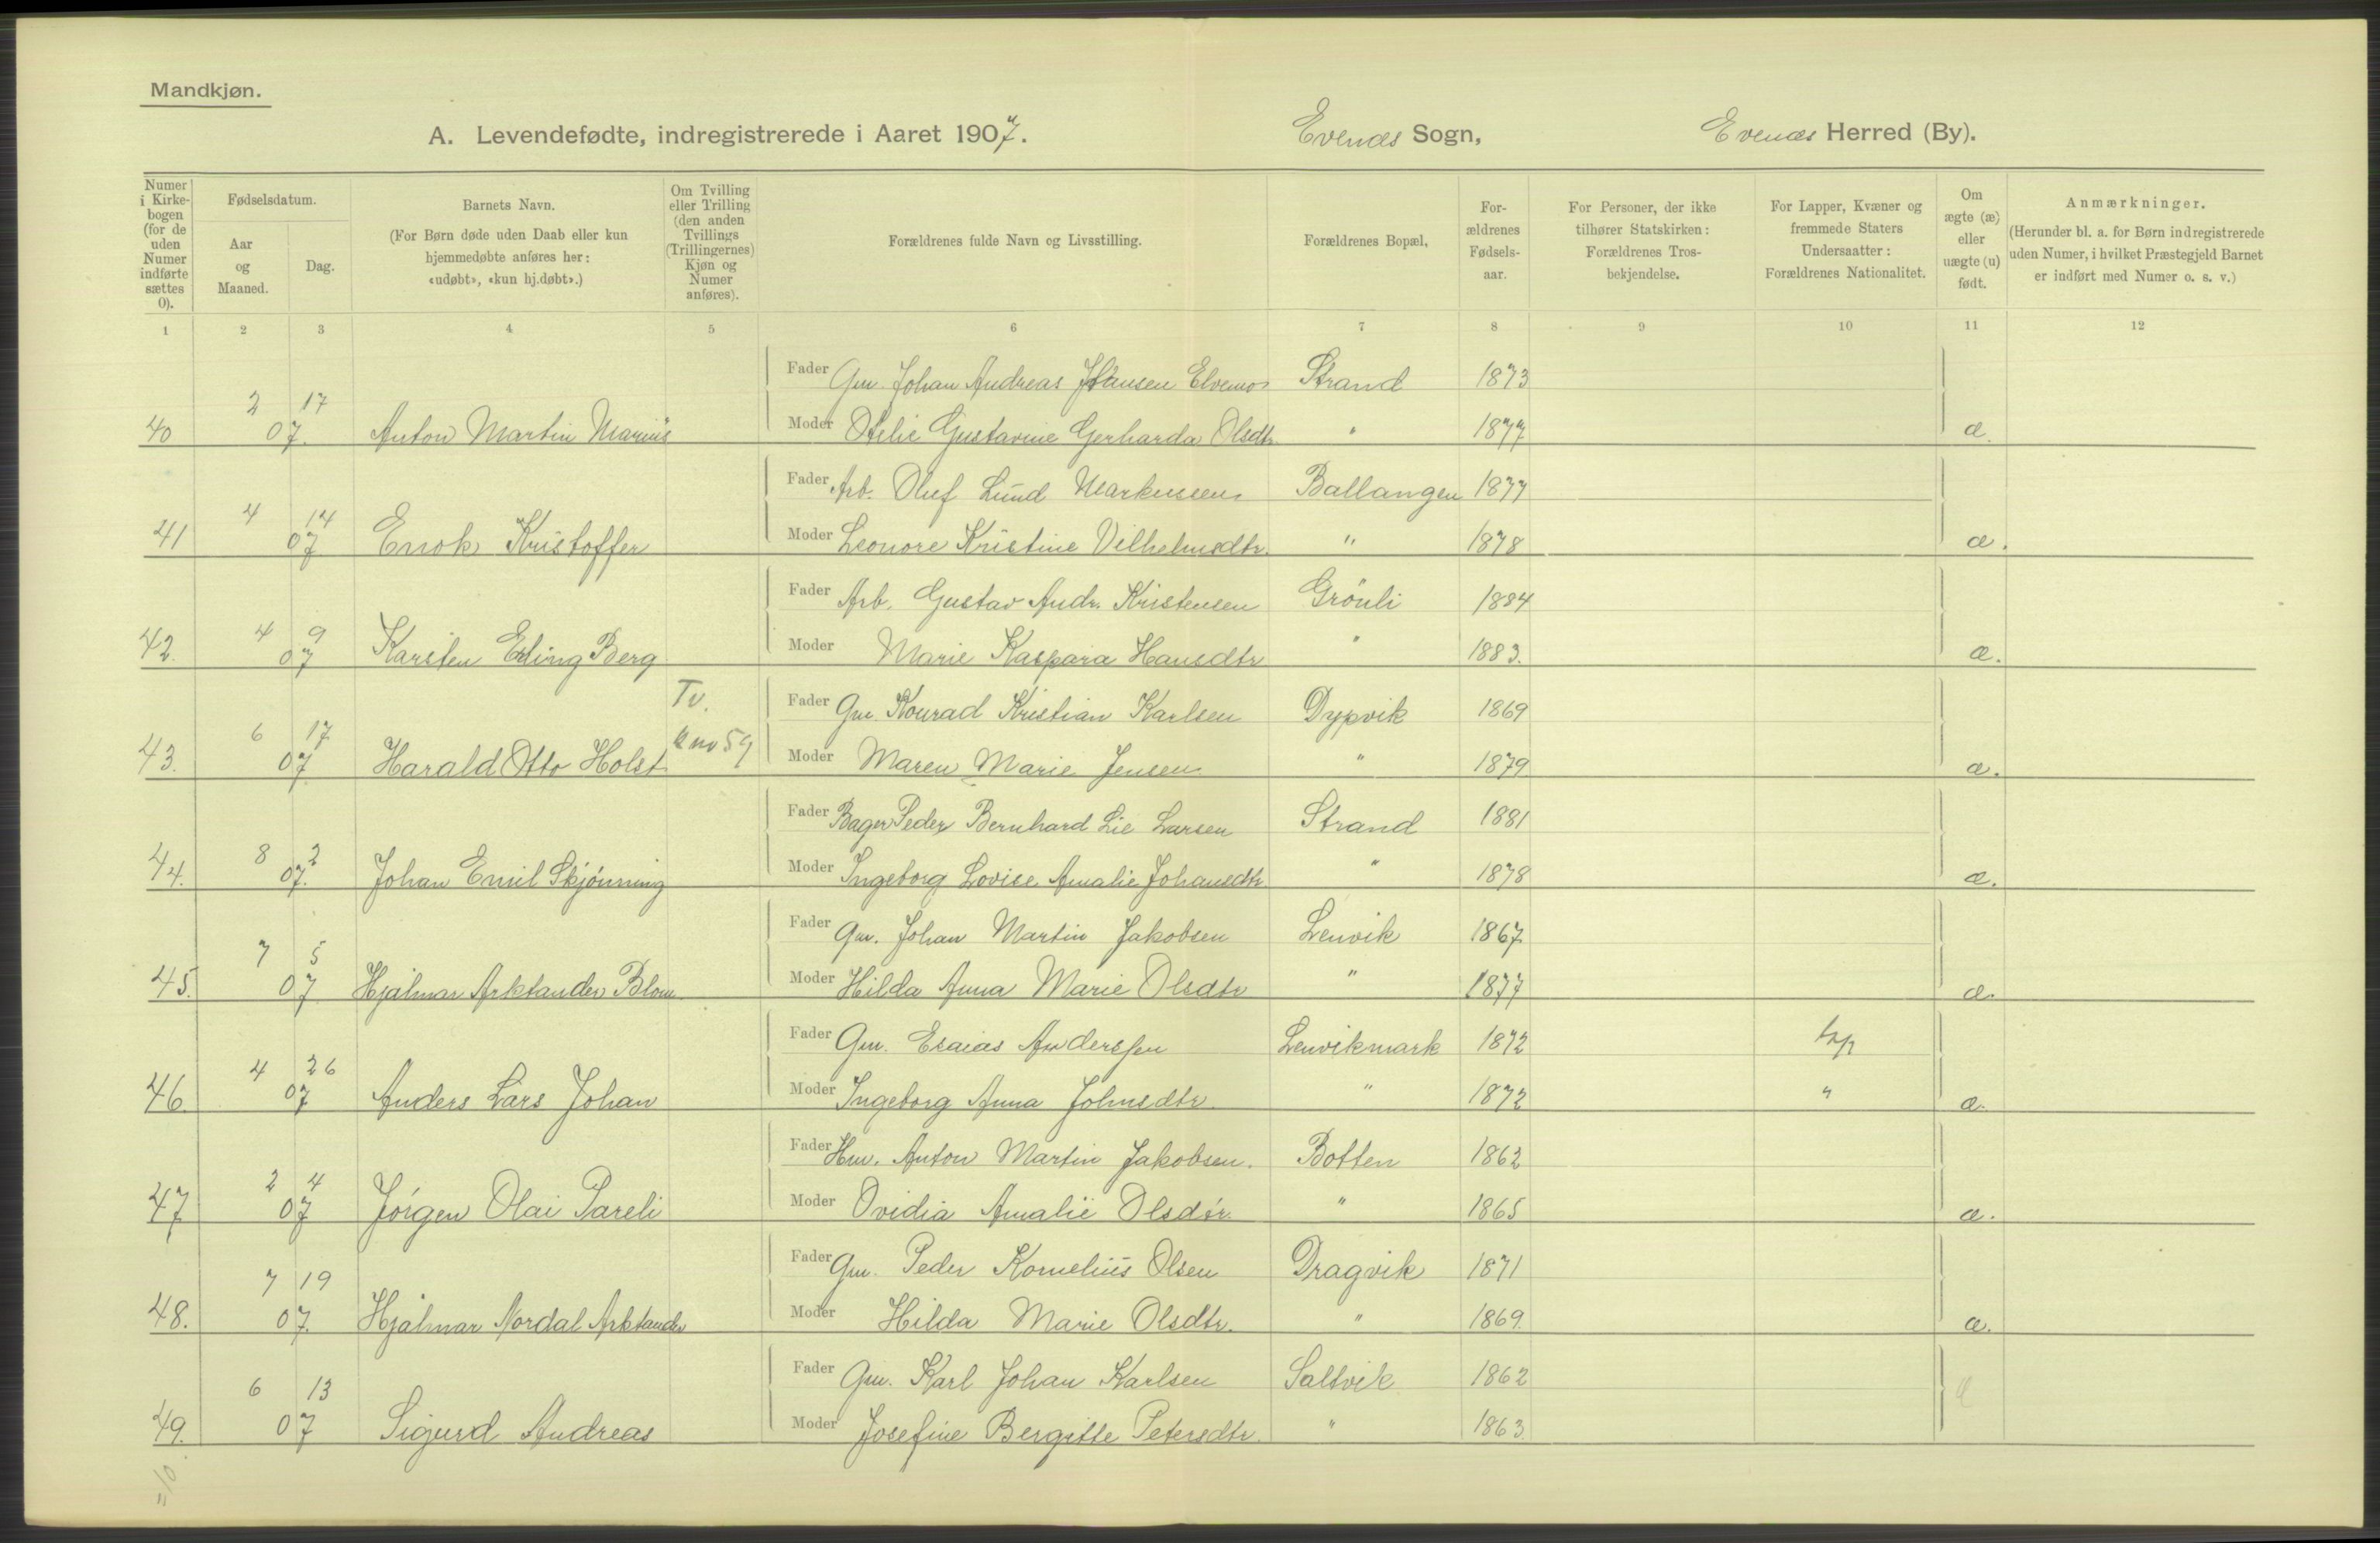 Mandkjøn.
A. Levendefødte, indregistrerede i Aaret 1907. Evenes Sogn, Evenæs Herred (By).
Numer i Kirkebogen (for de uden Numer indførte sættes 0).
Fødselsdatum.
Aar og Maaned.
Dag.
Barnets Navn.
(For Børn døde uden Daab eller kun hjemmedøbte anføres her: «udøbt», «kun hj.døbt».)
Om Tvilling eller Trilling (den anden Tvillings (Trillingernes) Kjøn og Numer anføres).
Forældrenes fulde Navn og Livsstilling.
Forældrenes Bopæl,
Forældrenes Fødselsaar.
For Personer, der ikke tilhører Statskirken: Forældrenes Trosbekjendelse.
For Lapper, Kvæner og fremmede Staters Undersaatter: Forældrenes Nationalitet.
Om ægte (æ) eller uægte (u) født.
Anmærkninger.
(Herunder bl. a. for Børn indregistrerede uden Numer, i hvilket Præstegjeld Barnet er indført med Numer o. s. v.)
1 2 3 4 5 6 7 8 9 10 11 12
Fader Gm. Johan Andreas Johansen Elvemo Strand 1873
40 2 17 07. Anton Martin Marius Moder Otelie Gustavine Gerharda Olsdtr. " 1877 æ.
Fader Arb. Oluf Lund Markussen Ballangen 1877
41 4 14 07 Enok Kristoffer Moder Leonore Kristine Vilhelmsdtr. " 1878 æ.
Fader Arb. Gustav Andr. Kristensen Grönli 1884
42. 4 9 07 Karsten Erling Berg Moder Marie Kaspara Hansdtr " 1883. æ.
Tv. Fader Gm. Konrad Kristian Karlsen Dypvik 1869
43. 6 17 07 Harald Otto Holst K no 59 Moder Maren Marie Jensen " 1879 æ.
Fader Bager Peder Bernhard Lie Larsen Strand 1881
44. 8 2 07. Johan Emil Skjönning Moder Ingeborg Lovise Amalie Johansdtr. " 1878 æ.
Fader Gm. Johan Martin Jakobsen Lenvik 1867
45. 7 5 07 Hjalmar Arktander Blom Moder Hilda Anna Marie Olsdtr " 1877 æ.
Fader Gm. Esaias Anderssen Lenvikmark 1872 Lap
46. 4 26 07 Anders Lars Johan Moder Ingeborg Anna Johnsdtr. " 1872 " æ.
Fader Hm. Anton Martin Jakobsen. Botten 1862
47 2 4 07 Jörgen Olai Pareli Moder Ovidia Amalie Olsdtr. " 1865 æ.
Fader Gm. Peder Kornelius Olsen Dragvik 1871
48. 7 19 07. Hjalmar Nordal Arktander Moder Hilda Marie Olsdtr. " 1869. æ.
Fader Gm. Karl Johan Karlsen Saltvik 1862
49. 6 13 07 Sigurd Andreas Moder Josefine Bergitte Petersdtr. " 1863.
=10.